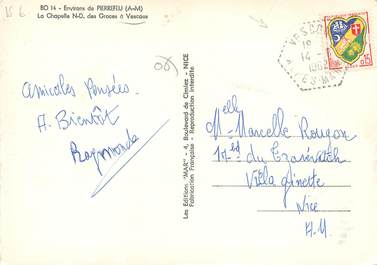 BO 14 - Environs de PIERREFEU (A-M)
La Chapelle N-D. des Graces à Vescous
Amicales Pensées.
A Bientôt
Raymonde
Les Editions "MAR" - 4, Boulevard de Cimiez - NICE
Fabrication Française - Reproduction interdite
Melle
M- Marcelle Rougon
bd du Tzaréwitch
Villa Ginette
Nice
A.M.
VESCOUS
18
14 -
0,15